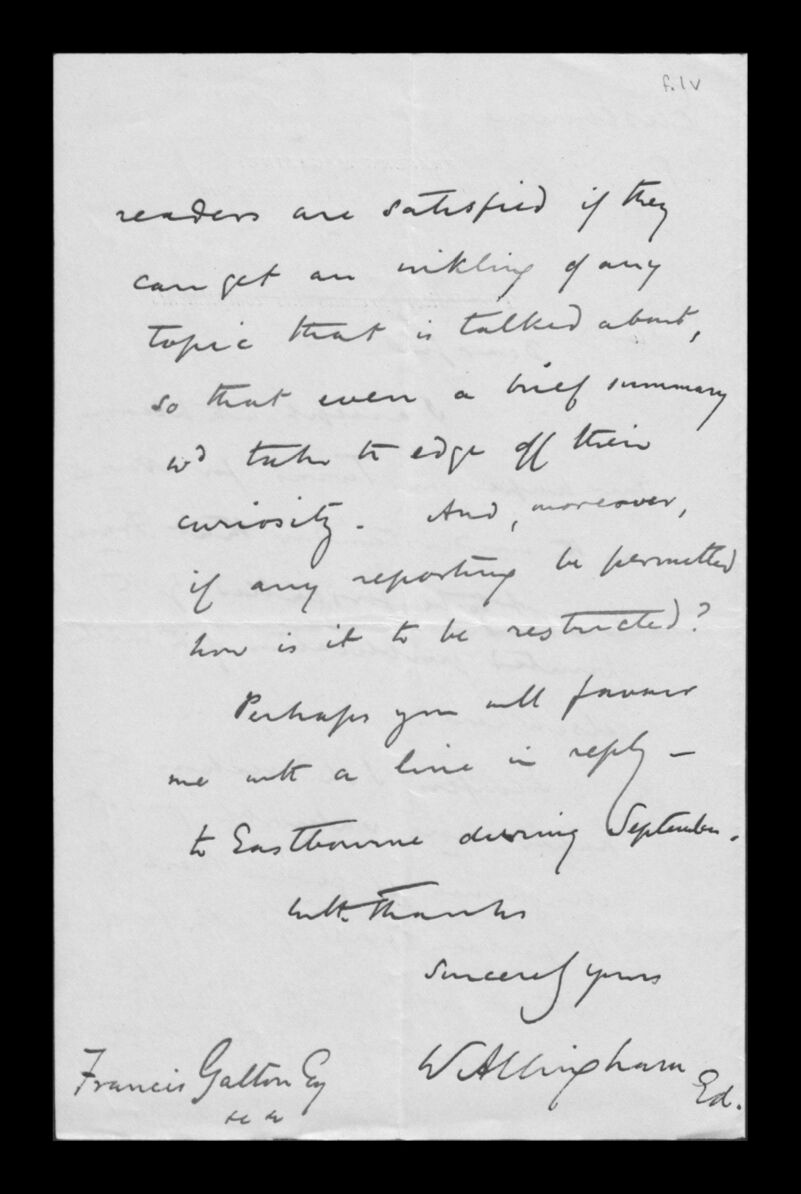 f.1v
readers are satisfied if they
can get an inkling of any
topic that is talked about,
so that even a brief summary
wd take the edge off their
curiosity. And, moreover,
if any reporting be permitted
how is it to be restricted?
Perhaps you will favour
me with a line in reply —
to Eastbourne during September.
With thanks
Sincerely yours
W Allingham
Ed.
Francis Galton Esq